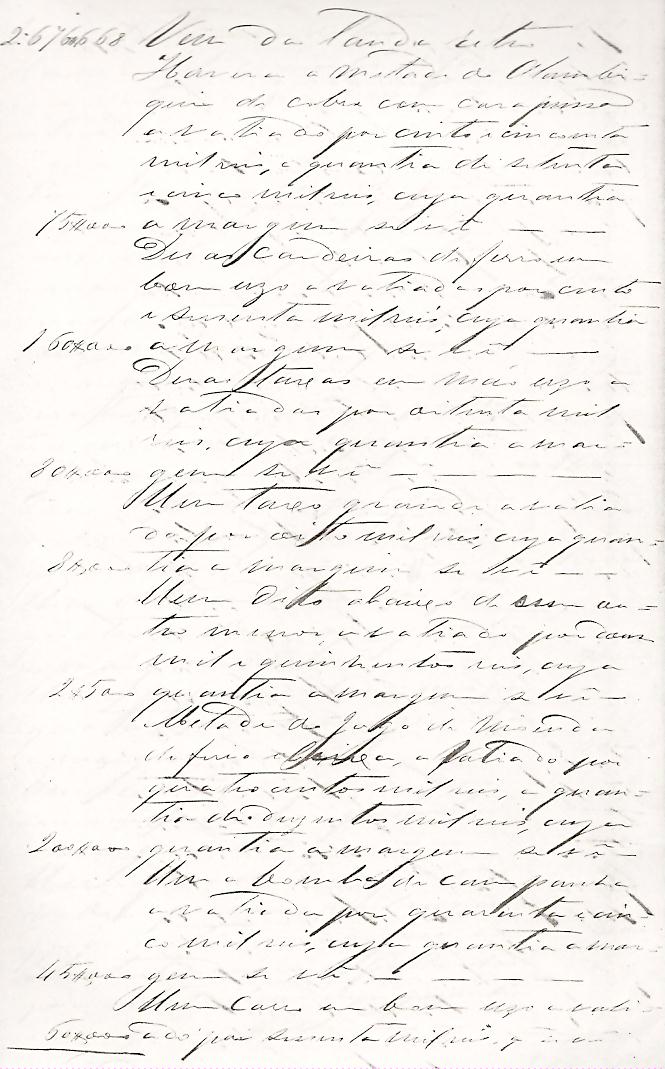 2:676$668 Vem da lauda retro
Haverá a metade do Alambi-
que de cobre com carapuça
avaliado por cento e cincoenta
mil reis, a quantia de setenta
e cinco mil reis, cuja quantia
75$000 a margem se vê
Duas Caldeiras de ferro em
bom uzo avaliadas por cento
e sessenta mil reis, cuja quantia
160$000 a margem se vê
Duas Taxas em máo uzo a
valiadas por oitenta mil
reis, cuja quantia a mar-
80$000 gem se vê
Um Taxo grande avalia
do por oito mil reis, cuja quan-
8$000 tia a margem se vê
Um Dito abaixo de um ou-
tro menor, avaliado por dous
mil e quinhentos reis, cuja
2$500 quantia a margem se vê
Metade do Jogo de Moenda
de ferro, avaliado por
quatro centos mil reis, a quan-
tia de duzentos mil reis, cuja
200$000 quantia a margem se vê
Uma bomba de campanha
avaliada por quarenta e cin-
co mil reis, cuja quantia a mar-
45$000 gem se vê
Um Carro em bom uzo avali-
60$000 ado por sessenta mil reis, q